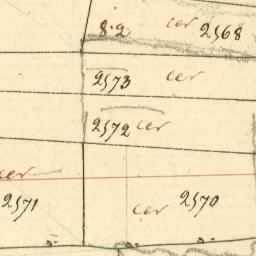 8·2 cer 2568
2573 cer
2572 cer
cer
2571 cer 2570